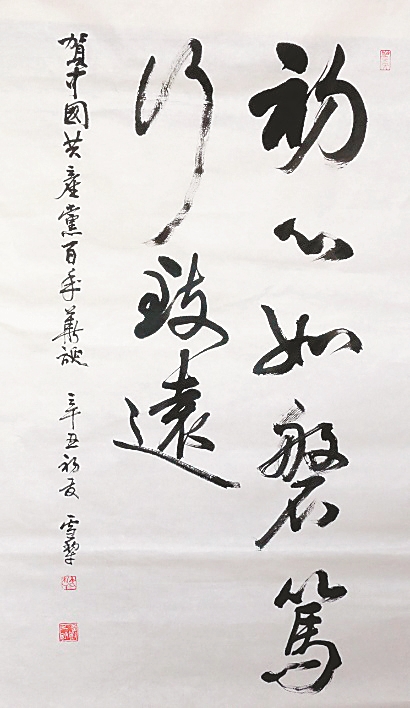 初心如磐篤
行致遠
賀中國共產黨百年華誕 辛丑初夏 雪犂